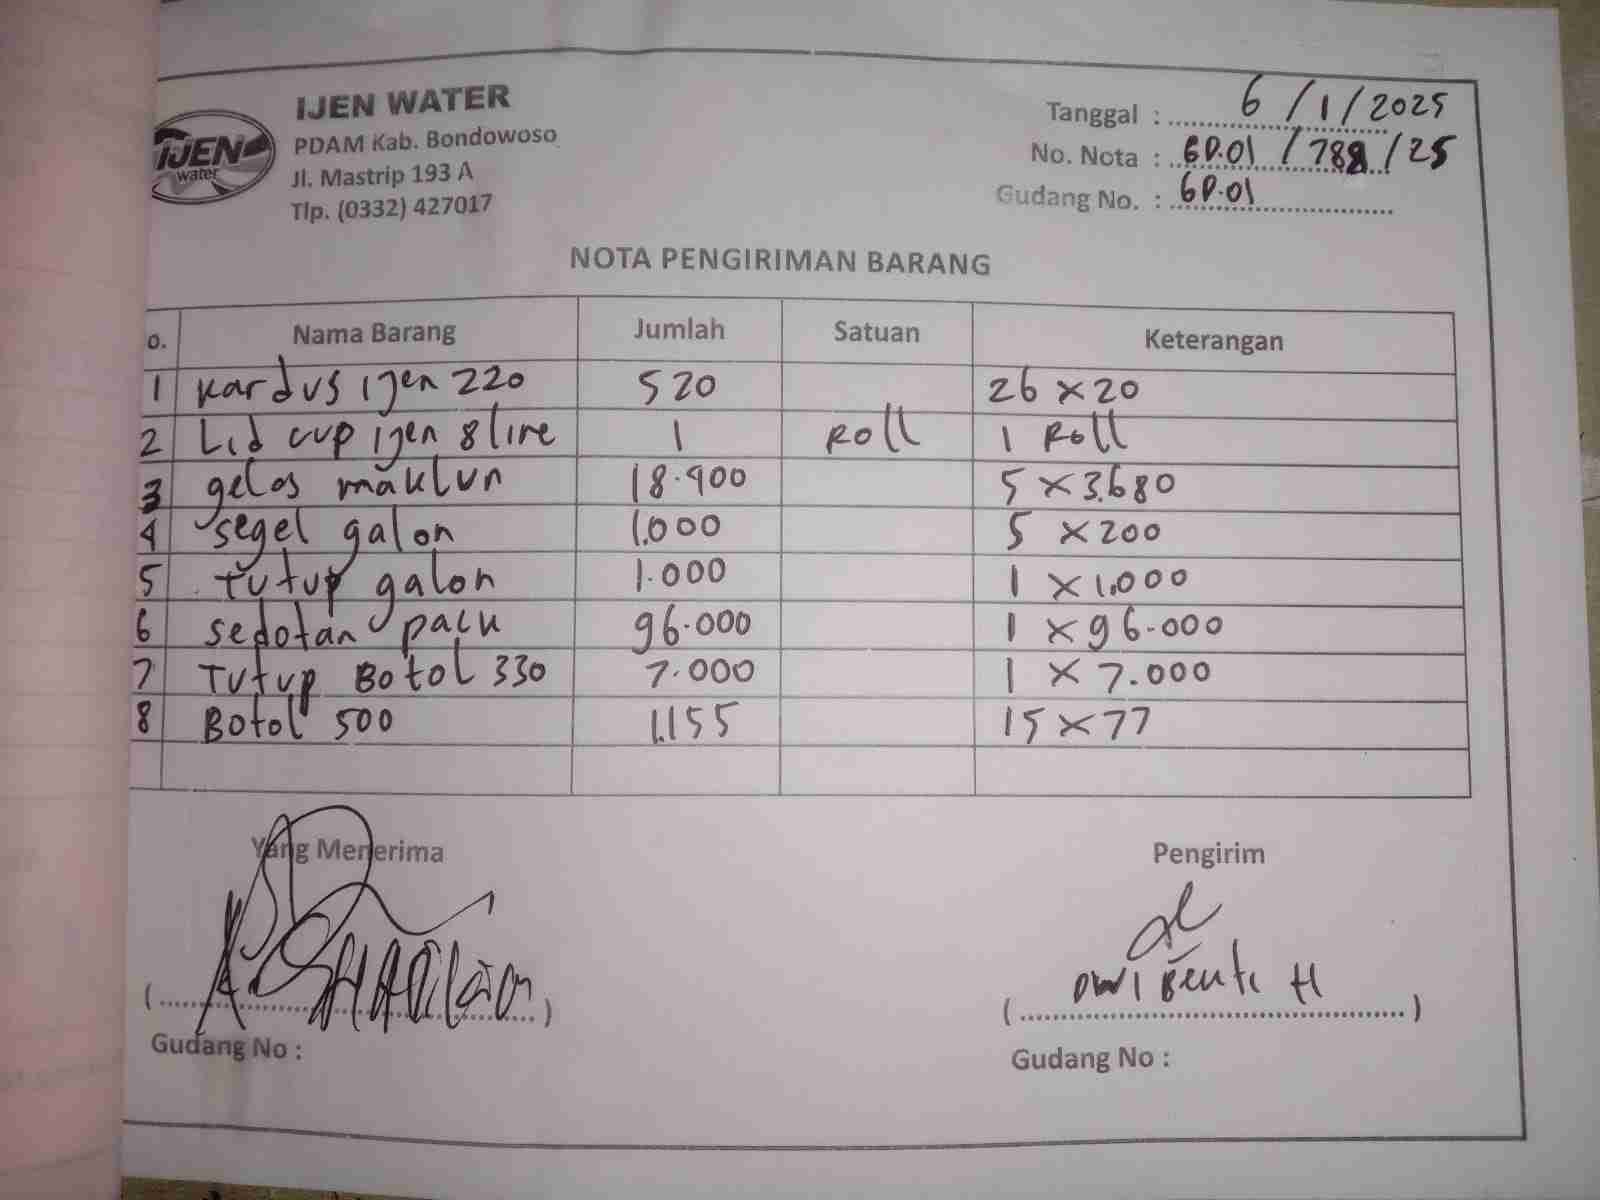 IJEN water
IJEN WATER
PDAM Kab. Bondowoso
Jl. Mastrip 193 A
Tlp. (0332) 427017
Tanggal : 6 / 1 / 2025
No. Nota : GD.01 / 788 / 25
Gudang No. : GD.01
NOTA PENGIRIMAN BARANG
o. Nama Barang Jumlah Satuan Keterangan
1 Kardus ijen 220 520 26 x 20
2 Lid cup ijen 8 line 1 Roll 1 Roll
3 gelas maklun 18.400 5 x 3.680
4 segel galon 1.000 5 x 200
5 Tutup galon 1.000 1 x 1.000
6 sedotan pack 96.000 1 x 96.000
7 Tutup Botol 330 7.000 1 x 7.000
8 Botol 500 1.155 15 x 77
Yang Menerima Pengirim
(....................) (Dwi H....................)
Gudang No : Gudang No :